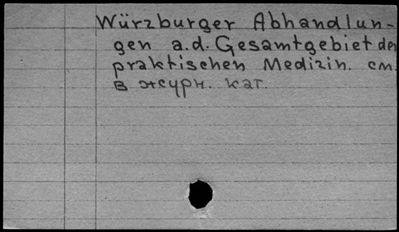 Würzburger Abhandlun-
gen a.d. Gesamtgebiet der
praktischen Medizin. см.
в журн. кат.